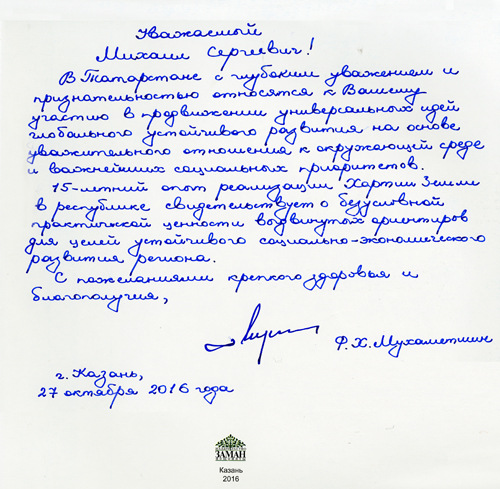 Уважаемый
Михаил Сергеевич!
В Татарстане с глубоким уважением и
признательностью относятся к Вашему
участию в продвижении универсальных идей
глобального устойчивого развития на основе
уважительного отношения к окружающей среде
и важнейших социальных приоритетов.
15-летний опыт реализации Хартии Земли
в республике свидетельствует о безусловной
практической ценности выдвинутых ориентиров
для целей устойчивого социально-экономического
развития региона.
С пожеланиями крепкого здоровья и
благополучия,
Ф.Х.Мухаметшин
г. Казань,
27 октября 2016 года
ЗАМАН
Казань
2016